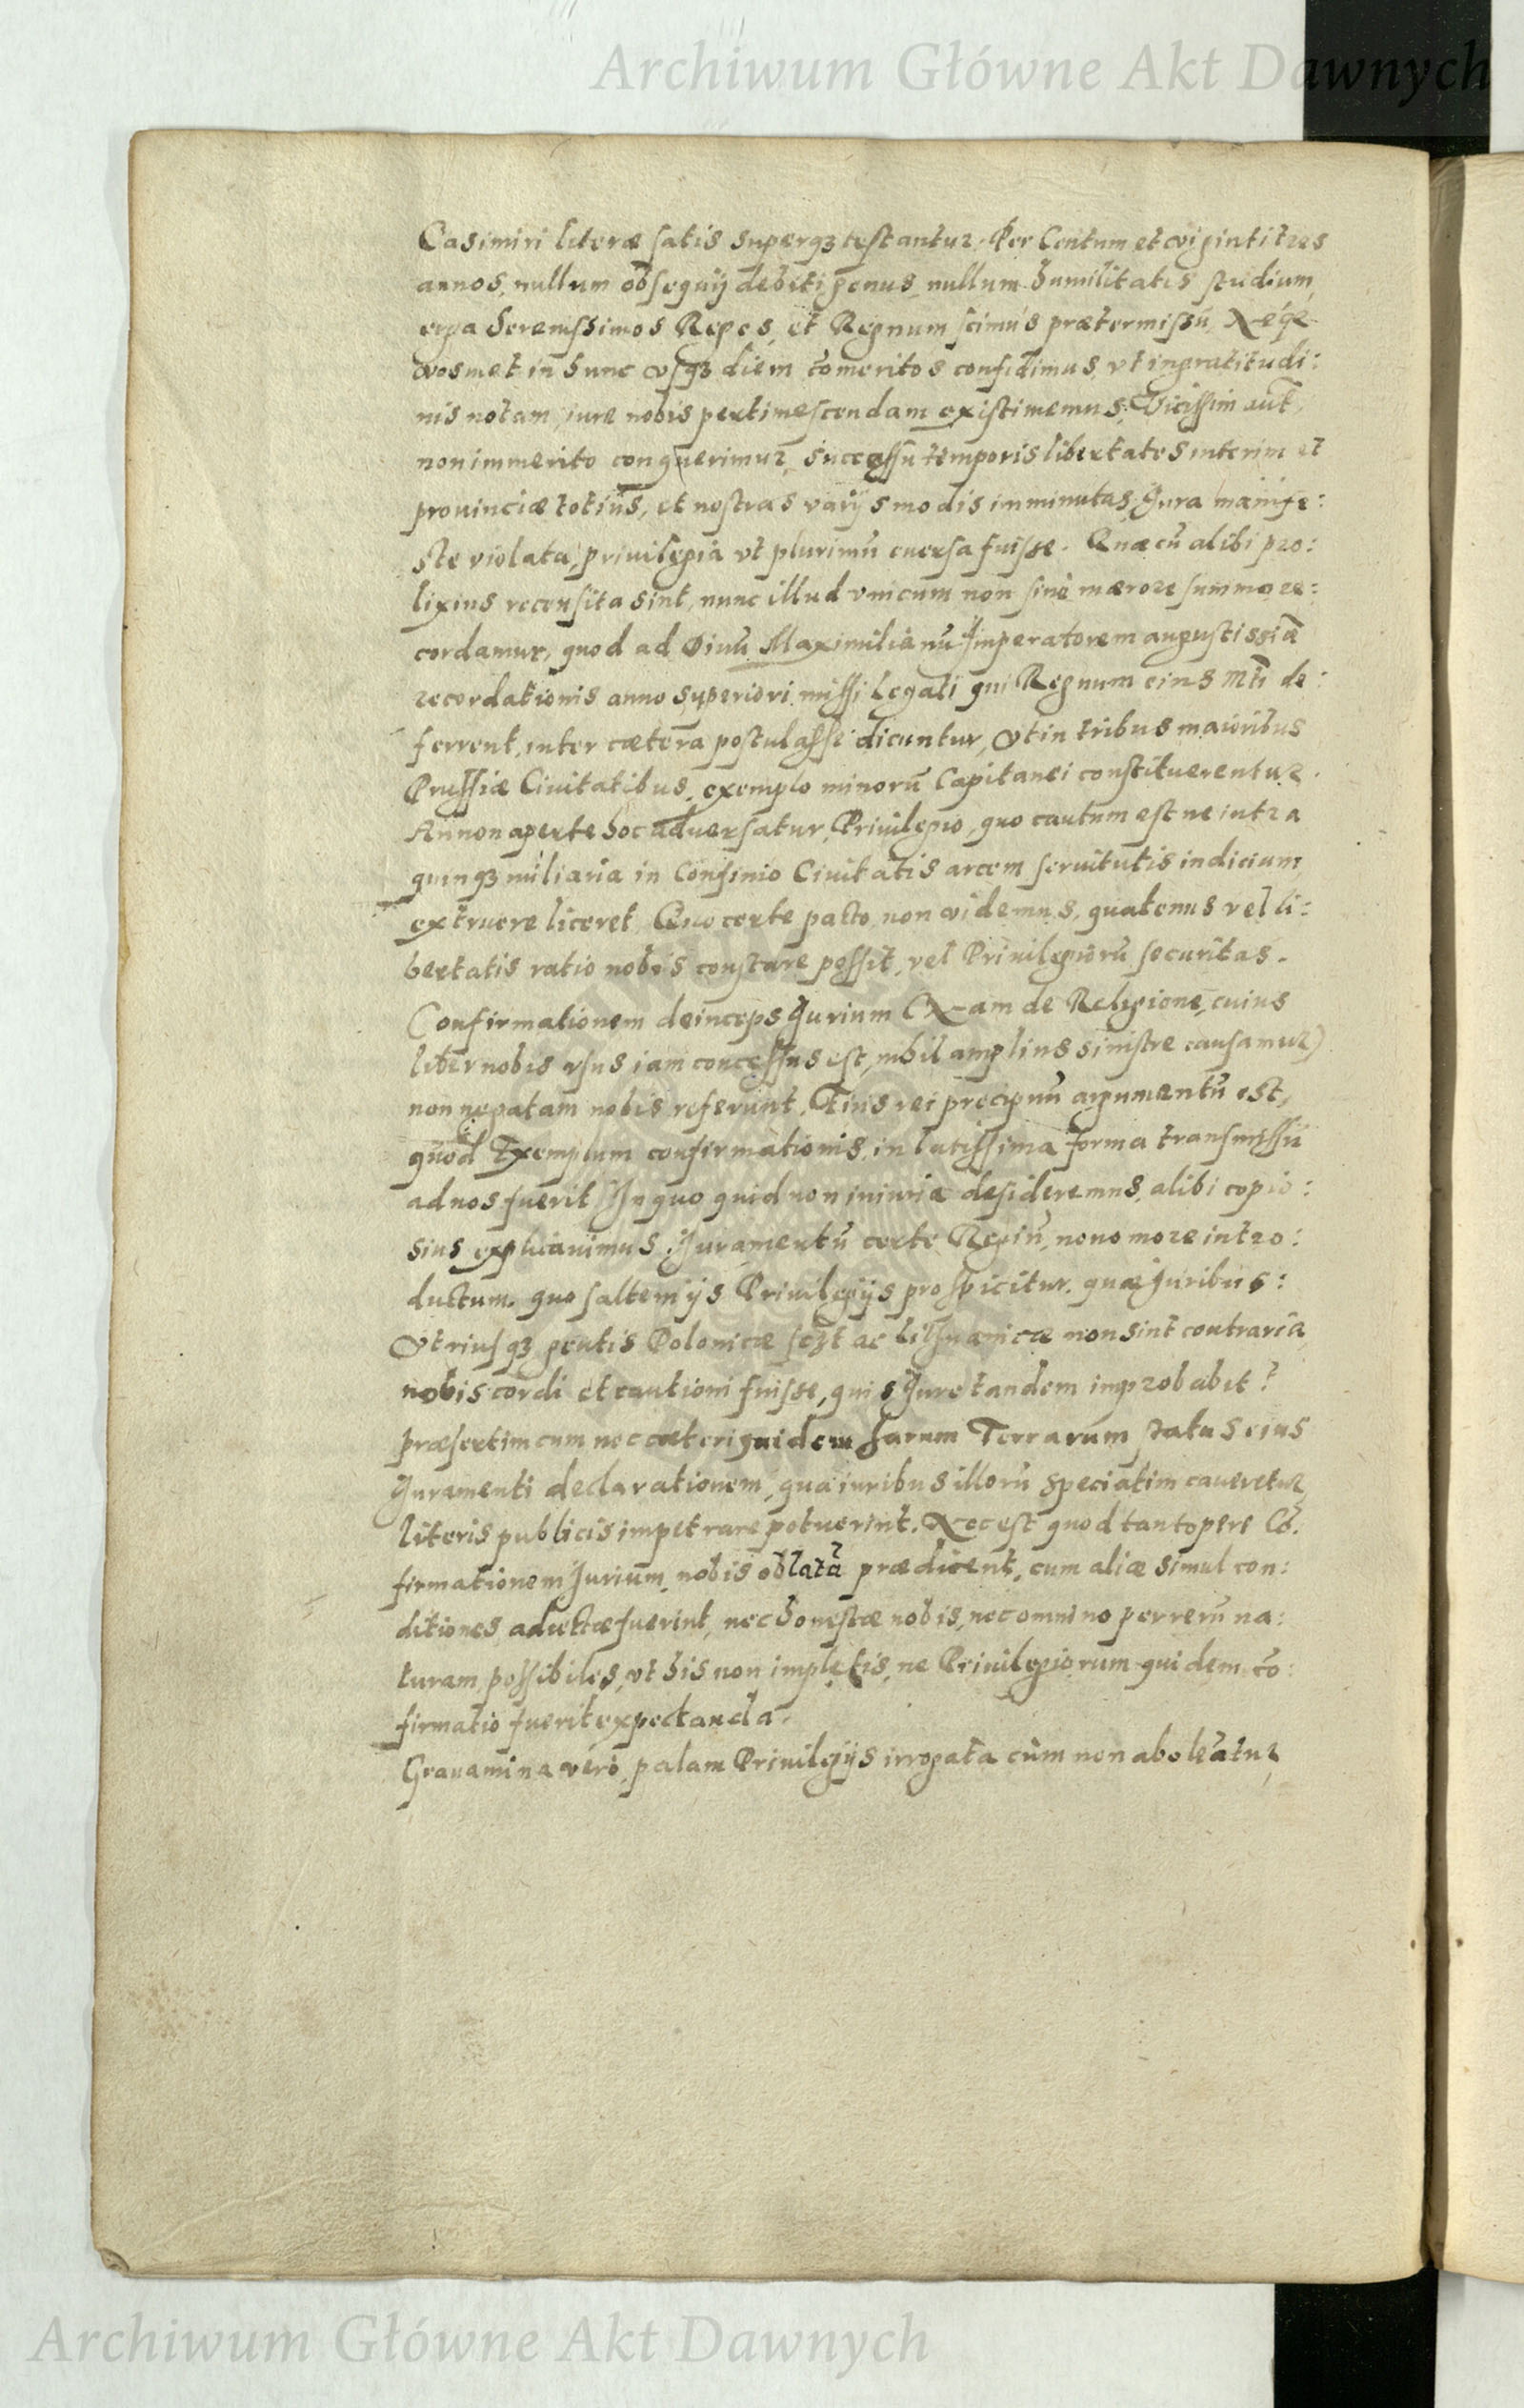 Archiwum Główne Akt Dawnych
Casimiri literæ satis superqȝ testantur. Per Centum et viginti tres
annos, nullum obsequij debiti genus, nullum humilitatis studium,
erga Serenissimos Reges, et Regnum scimus prætermissū, Neqȝ
vosmet in hunc vsqȝ diem cōmeritos confidimus, vt ingratitudi:
nis notam, iure nobis pertimescendam existimemus. Vicissim aut̄
non immerito conquerimur, successu temporis libertates interim et
prouinciæ totius, et nostras varijs modis imminutas, Jura manife:
ste violata, priuilegia vt plurimū euersa fuisse. Quæ cū alibi pro:
lixius recensita sint, nunc illud vnicum non sine mærore summo re:
cordamur, quod ad Diuū Maximilianū Imperatorem augustissiæ
recordationis anno superiori missi Legati qui Regnum eius Mti de:
ferrent, inter cætera postulasse dicuntur, vt in tribus maioribus
Prussiæ Ciuitatibus, exemplo minorū Capitanei constituerentur.
An non aperte hoc aduersatur Priuilegio, quo cautum est ne intra
quinqȝ miliaria in Confinio Ciuitatis arcem seruitutis indicium
extruere liceret. Quo certe pacto, non videmus, quatenus vel li:
bertatis ratio nobis constare possit, vel Priuilegiorū securitas.
Confirmationem deinceps Jurium (Nam de Religione, cuius
liber nobis vsus iam concessus est, nihil amplius sinistre causamur)
non negatam nobis referunt. Eius rei precipuū argumentū est,
quod Exemplum confirmationis, in latissima forma transmissū
ad nos fuerit. In quo quid non iniuria desideremus, alibi copio:
sius explicauimus. Juramentū certe Regiū, nouo more intro:
ductum. quo saltem ijs Priuilegijs prospicitur, quæ Juribus:
Vtriusqȝ gentis Polonicæ sczt ac Lithuanicæ non sint contraria,
nobis cordi et cautioni fuisse, quis Jure tandem improbabit?
præsertim cum nec cæteri quidem harum Terrarum status eius
Juramenti declarationem, qua iuribus illorū speciatim caueretur,
literis publicis impetrare potuerint. Nec est quod tantopere Cō:
firmationem Jurium, nobis oblatā prædicent, cum aliæ simul con:
ditiones adiectæ fuerint, nec honestæ nobis, nec omnino per rerū na:
turam possibiles, vt his non impletis, ne Priuilegiorum quidem cō:
firmatio fuerit expectanda.
Grauamina verò, palam Priuilegijs irrogata cùm non aboleātur,
Archiwum Główne Akt Dawnych